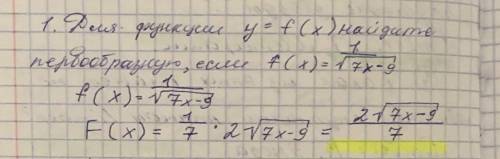 1. Для функции y = f(x) найдите
первообразную, если f(x) = 1/√(7x-9)
f(x) = 1/√(7x-9)
F(x) = 1/7 · 2√(7x-9) = 2√(7x-9)/7